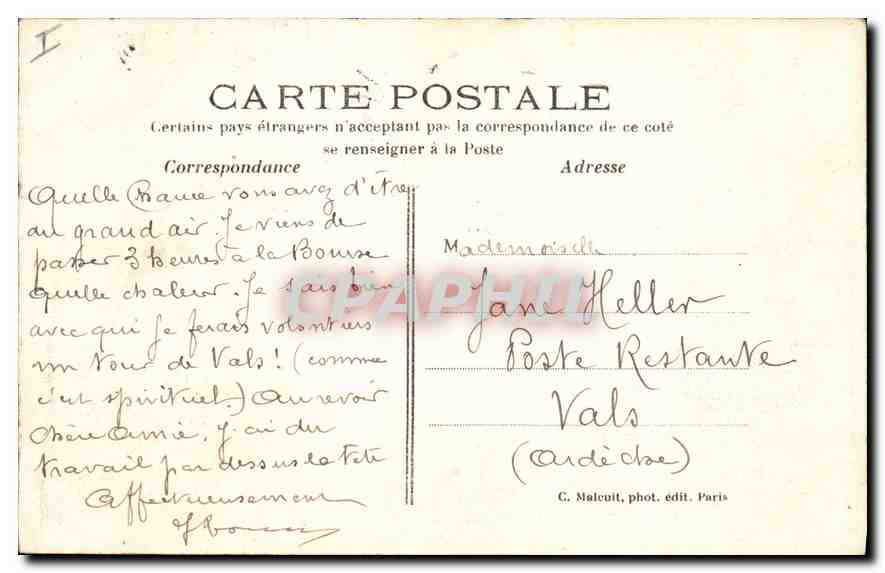 I
CARTE POSTALE
Certains pays étrangers n'acceptant pas la correspondance de ce coté
se renseigner à la Poste
Correspondance
Adresse
Quelle chance vous avez d'être
au grand air. Je viens de
passer 3 heures à la Bourse
quelle chaleur. Je sais bien
avec qui je ferais volontiers
un tour de Vals! (comme
c'est spirituel.) Au revoir
chère amie, j'ai du
travail par dessus la tête
Affectueusement
Mademoiselle
Jane Heller
Poste Restante
Vals
(Ardèche)
C. Malcuit, phot. édit. Paris
CPAPHIL